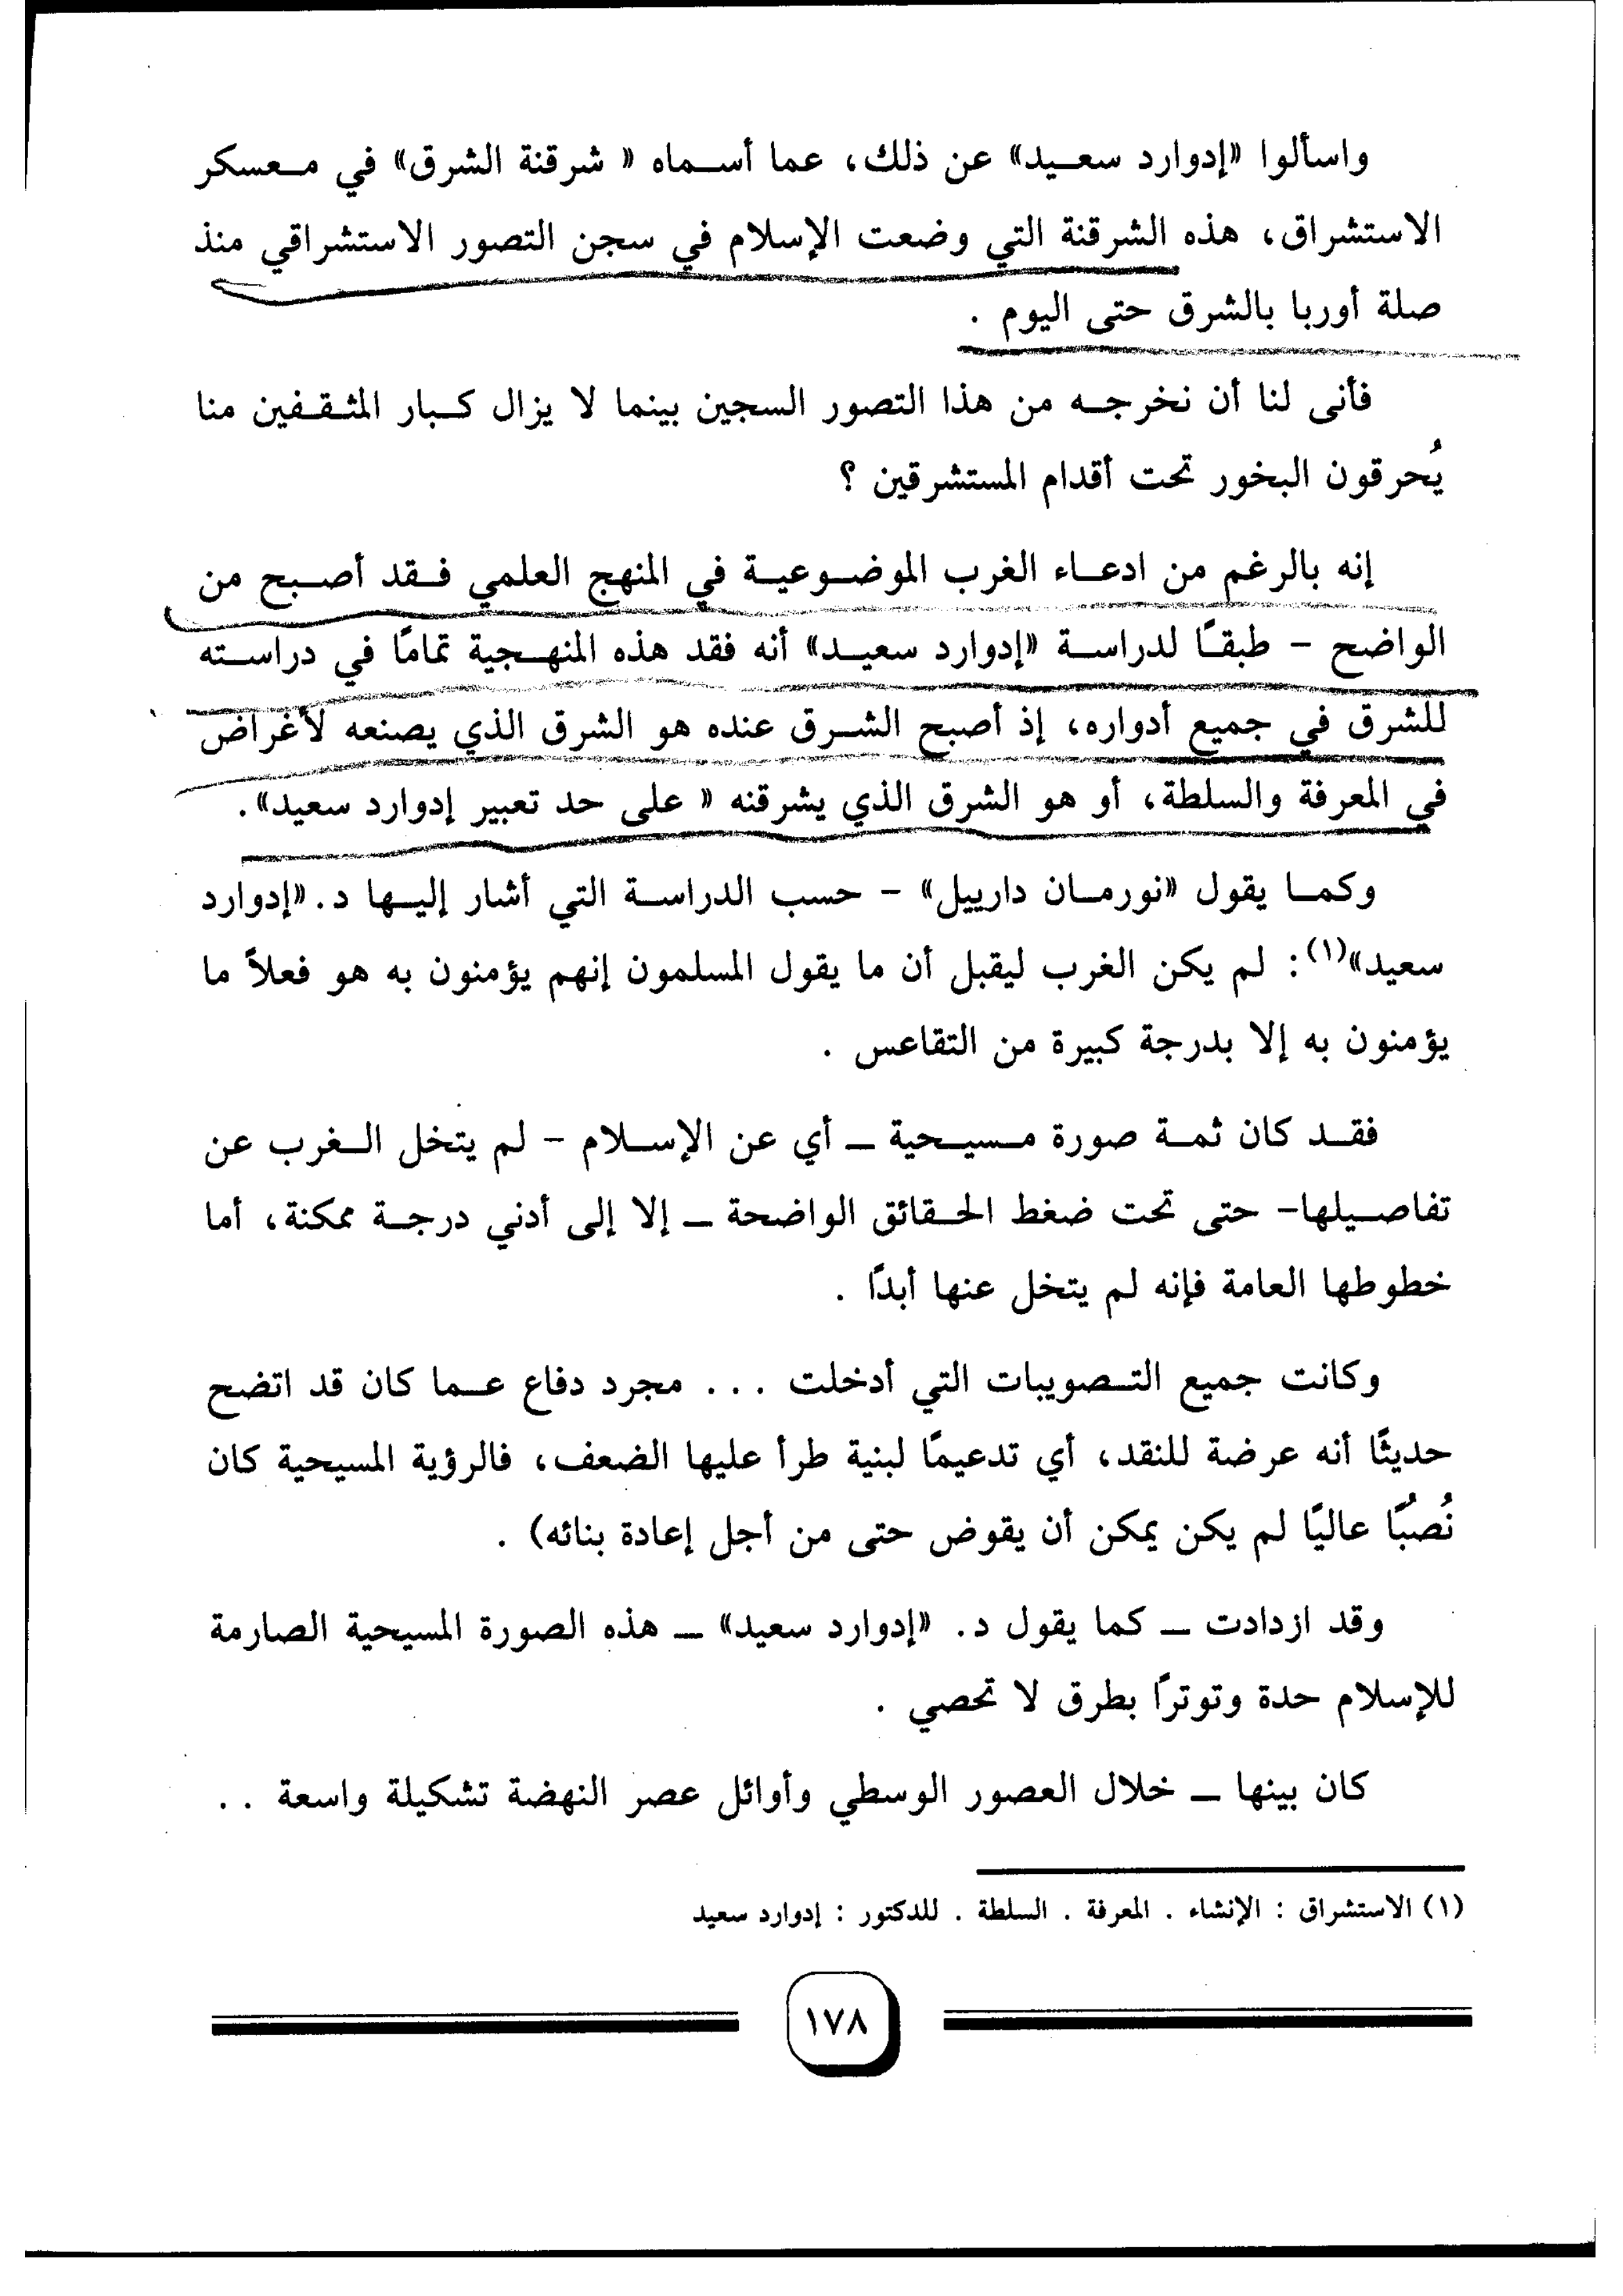 واسألوا «إدوارد سعيد» عن ذلك، عما أسماه « شرقنة الشرق» في معسكر
الاستشراق، هذه الشرقنة التي وضعت الإسلام في سجن التصور الاستشراقي منذ
صلة أوربا بالشرق حتى اليوم .
فأنى لنا أن نخرجه من هذا التصور السجين بينما لا يزال كبار المثقفين منا
يُحرقون البخور تحت أقدام المستشرقين ؟
إنه بالرغم من ادعاء الغرب الموضوعية في المنهج العلمي فقد أصبح من
الواضح - طبقًا لدراسة «إدوارد سعيد» أنه فقد هذه المنهجية تمامًا في دراسته
للشرق في جميع أدواره، إذ أصبح الشرق عنده هو الشرق الذي يصنعه لأغراض
في المعرفة والسلطة، أو هو الشرق الذي يشرقنه « على حد تعبير إدوارد سعيد».
وكما يقول «نورمان دارييل» - حسب الدراسة التي أشار إليها د. «إدوارد
سعيد»(١): لم يكن الغرب ليقبل أن ما يقول المسلمون إنهم يؤمنون به هو فعلاً ما
يؤمنون به إلا بدرجة كبيرة من التقاعس .
فقد كان ثمة صورة مسيحية ــ أي عن الإسلام - لم يتخل الغرب عن
تفاصيلها- حتى تحت ضغط الحقائق الواضحة ــ إلا إلى أدني درجة ممكنة، أما
خطوطها العامة فإنه لم يتخل عنها أبدًا .
وكانت جميع التصويبات التي أدخلت . . . مجرد دفاع عما كان قد اتضح
حديثًا أنه عرضة للنقد، أي تدعيمًا لبنية طرأ عليها الضعف، فالرؤية المسيحية كان
نُصُبًا عاليًا لم يكن يمكن أن يقوض حتى من أجل إعادة بنائه) .
وقد ازدادت ــ كما يقول د. «إدوارد سعيد» ــ هذه الصورة المسيحية الصارمة
للإسلام حدة وتوترًا بطرق لا تحصي .
كان بينها ــ خلال العصور الوسطي وأوائل عصر النهضة تشكيلة واسعة . .
(١) الاستشراق : الإنشاء . المعرفة . السلطة . للدكتور : إدوارد سعيد
١٧٨